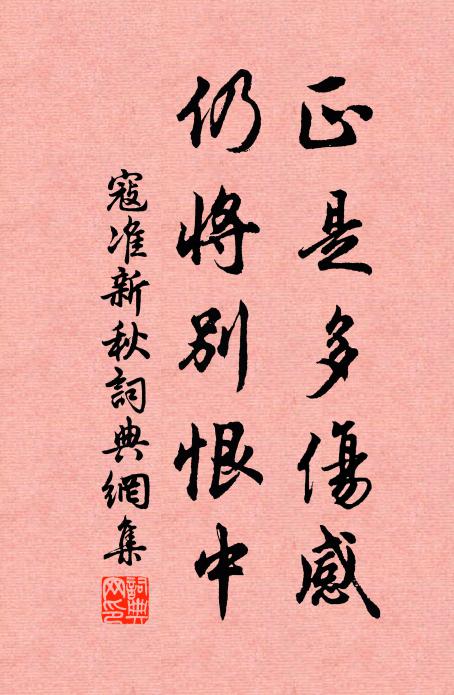 正是多傷感
仍將別恨中
寇准新秋詞典網集
詞典網印